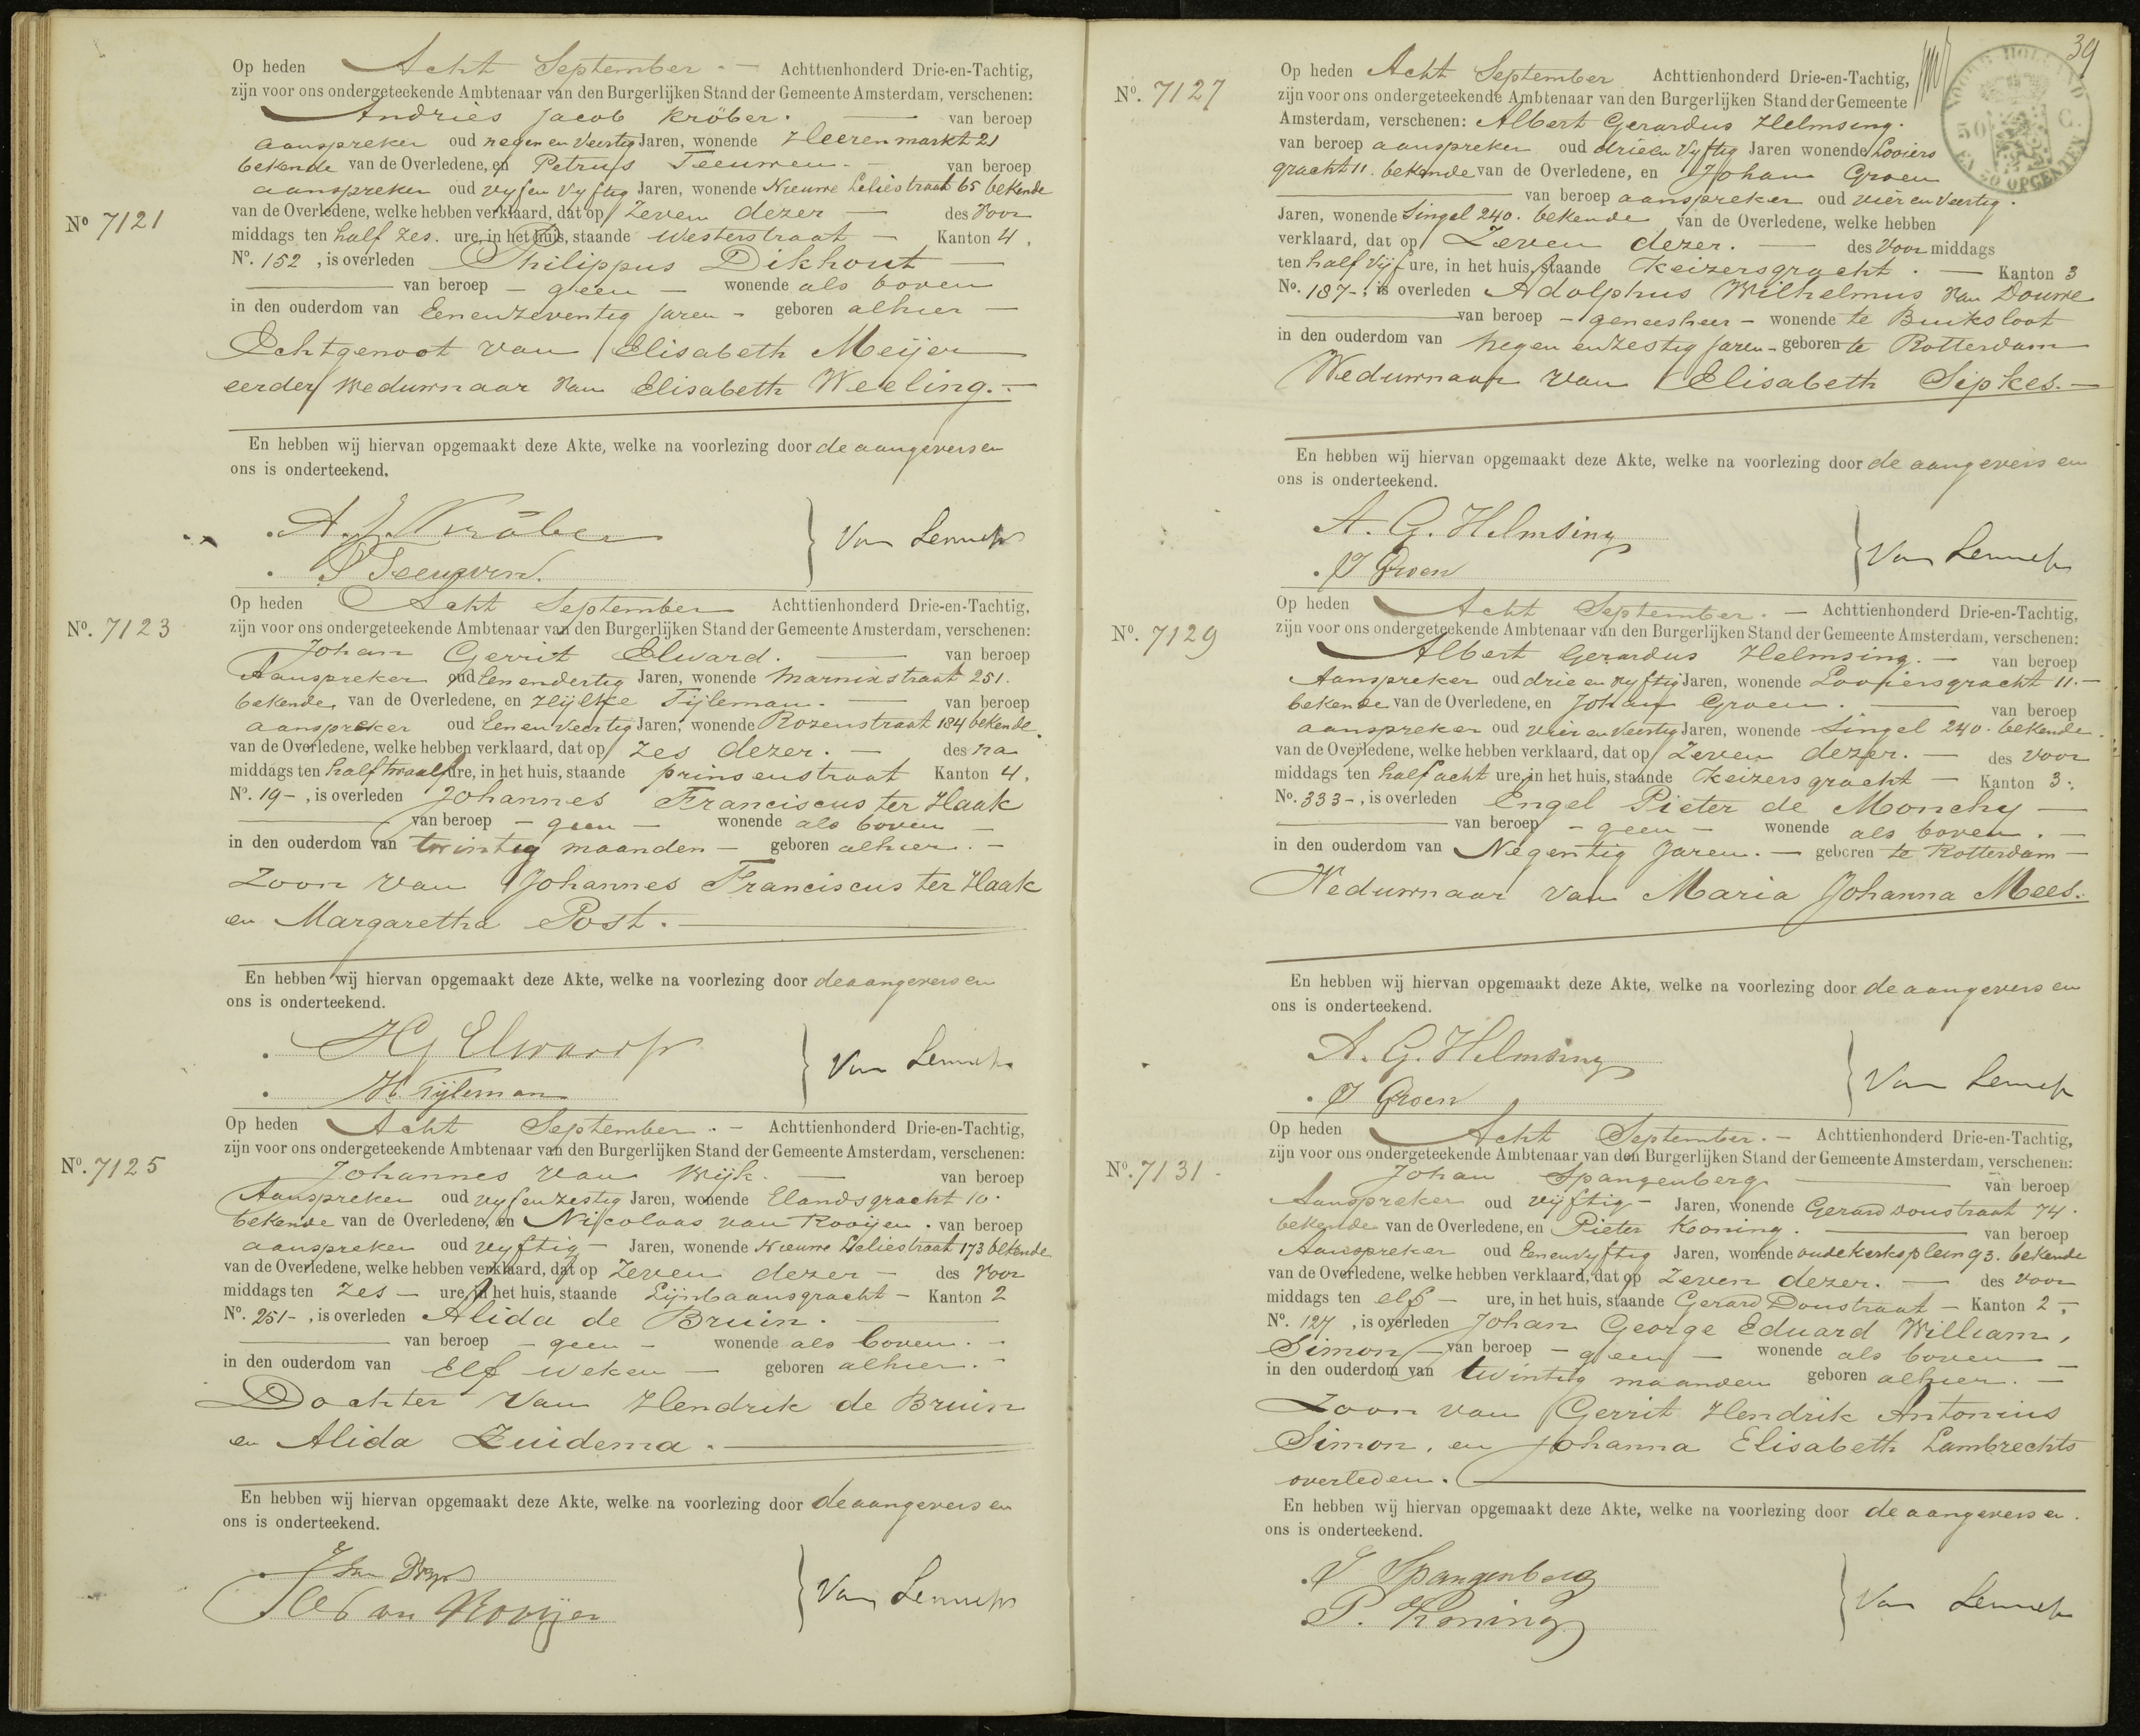 Op heden Acht September. — Achttienhonderd Drie-en-Tachtig,
zijn voor ons ondergeteekende Ambtenaar van den Burgerlijken Stand der Gemeente Amsterdam, verschenen:
Andries Jacob Kröber. — van beroep
aanspreker oud negen en Veertig Jaren, wonende Heerenmarkt 21
bekende van de Overledene, en Petrus Teeuwen. — van beroep
aanspreker oud vyf en Vyftig Jaren, wonende Nieuwe Leliestraat 65 bekende
No 7121
van de Overledene, welke hebben verklaard, dat op Zeven dezer — des Voor
middags ten half zes. ure, in het huis, staande Westerstraat — Kanton 4.
No. 152, is overleden Philippus Dikhout —
— van beroep — geen — wonende als boven
in den ouderdom van Eenenzeventig jaren - geboren alhier —
Echtgenoot van Elisabeth Meijer
eerder Weduwnaar van Elisabeth Weeling. —
En hebben wij hiervan opgemaakt deze Akte, welke na voorlezing door de aangevers en
ons is onderteekend.
A. J. Kröber
P Teeuwen.
Van Lennep
Op heden Acht September Achttienhonderd Drie-en-Tachtig,
No. 7123
zijn voor ons ondergeteekende Ambtenaar van den Burgerlijken Stand der Gemeente Amsterdam, verschenen:
Johan Gerrit Elward. — van beroep
Aanspreker oud Eenendertig Jaren, wonende Marnixstraat 251.
bekende van de Overledene, en Hijlke Tijleman. — van beroep
aanspreker oud Een en Veertig Jaren, wonende Rozenstraat 184 bekende.
van de Overledene, welke hebben verklaard, dat op zes dezer. — des na
middags ten half twaalf ure, in het huis, staande prinsenstraat Kanton 4.
No. 19 -, is overleden Johannes Franciscus ter Haak
— van beroep — geen — wonende als boven —
in den ouderdom van twintig maanden — geboren alhier. —
Zoon van Johannes Franciscus ter Haak
en Margaretha Post. —
En hebben wij hiervan opgemaakt deze Akte, welke na voorlezing door de aangevers en
ons is onderteekend.
Elward
H. Tijleman
Van Lennep
Op heden Acht September. — Achttienhonderd Drie-en-Tachtig,
zijn voor ons ondergeteekende Ambtenaar van den Burgerlijken Stand der Gemeente Amsterdam, verschenen:
No. 7125
Johannes van Wijk. — van beroep
Aanspreker oud vyf en zestig Jaren, wonende Elandsgracht 10.
bekende van de Overledene, en Nicolaas van Rooijen. van beroep
aanspreker oud vyftig — Jaren, wonende Nieuwe Leliestraat 173 bekende
van de Overledene, welke hebben verklaard, dat op Zeven dezer — des Voor
middags ten Zes — ure, in het huis, staande Lijnbaansgracht — Kanton 2
No. 251 -, is overleden Alida de Bruin. —
— van beroep — geen — wonende als boven. —
in den ouderdom van Elf weken — geboren alhier. —
Dochter van Hendrik de Bruin
en Alida Zuidema. —
En hebben wij hiervan opgemaakt deze Akte, welke na voorlezing door de aangevers en
ons is onderteekend.
van Rooijen
Van Lennep
39
Op heden Acht September Achttienhonderd Drie-en-Tachtig,
No. 7127
zijn voor ons ondergeteekende Ambtenaar van den Burgerlijken Stand der Gemeente
Amsterdam, verschenen: Albert Gerardus Helmsing.
van beroep aanspreker oud drie en Vyftig Jaren wonende Looiers
gracht 11. bekende van de Overledene, en Johan Groen
— van beroep aanspreker oud vier en Veertig.
Jaren, wonende Singel 240. bekende van de Overledene, welke hebben
verklaard, dat op Zeven dezer. — des Voor middags
ten half Vijf ure, in het huis, staande Keizersgracht. — Kanton 3
No. 187 -, is overleden Adolphus Wilhelmus van Douwe
— van beroep — geneesheer — wonende te Buiksloot
in den ouderdom van Negen en zestig jaren - geboren te Rotterdam
Weduwnaar van Elisabeth Sipkes. —
En hebben wij hiervan opgemaakt deze Akte, welke na voorlezing door de aangevers en
ons is onderteekend.
A. G. Helmsing
J Groen
Van Lennep
Op heden Acht September. — Achttienhonderd Drie-en-Tachtig,
No. 7129
zijn voor ons ondergeteekende Ambtenaar van den Burgerlijken Stand der Gemeente Amsterdam, verschenen:
Albert Gerardus Helmsing. — van beroep
Aanspreker oud drie en vyftig Jaren, wonende Looiersgracht 11. —
bekende van de Overledene, en Johan Groen. — van beroep
aanspreker oud vier en Veertig Jaren, wonende Singel 240. bekende.
van de Overledene, welke hebben verklaard, dat op Zeven dezer. — des voor
middags ten half acht ure, in het huis, staande Keizersgracht — Kanton 3.
No. 333 -, is overleden Engel Pieter de Monchy —
— van beroep — geen — wonende als boven. —
in den ouderdom van Negentig Jaren. — geboren te Rotterdam —
Weduwnaar van Maria Johanna Mees.
En hebben wij hiervan opgemaakt deze Akte, welke na voorlezing door de aangevers en
ons is onderteekend.
A. G. Helmsing
J Groen
Van Lennep
Op heden Acht September. — Achttienhonderd Drie-en-Tachtig,
zijn voor ons ondergeteekende Ambtenaar van den Burgerlijken Stand der Gemeente Amsterdam, verschenen:
No. 7131
Johan Spangenberg — van beroep
Aanspreker oud vijftig — Jaren, wonende Gerard doustraat 74.
bekende van de Overledene, en Pieter Kooning. — van beroep
Aanspreker oud Een en vyftig Jaren, wonende oudekerksplein 93. bekende
van de Overledene, welke hebben verklaard, dat op Zeven dezer. — des voor
middags ten elf — ure, in het huis, staande Gerard Doustraat — Kanton 2 -
No. 127, is overleden Johan George Eduard William,
Simon — van beroep — geen — wonende als boven —
in den ouderdom van twintig maanden geboren alhier. —
Zoon van Gerrit Hendrik Antonius
Simon, en Johanna Elisabeth Lambrechts
overleden. —
En hebben wij hiervan opgemaakt deze Akte, welke na voorlezing door de aangevers en.
ons is onderteekend.
J Spangenberg
P. Koning
Van Lennep